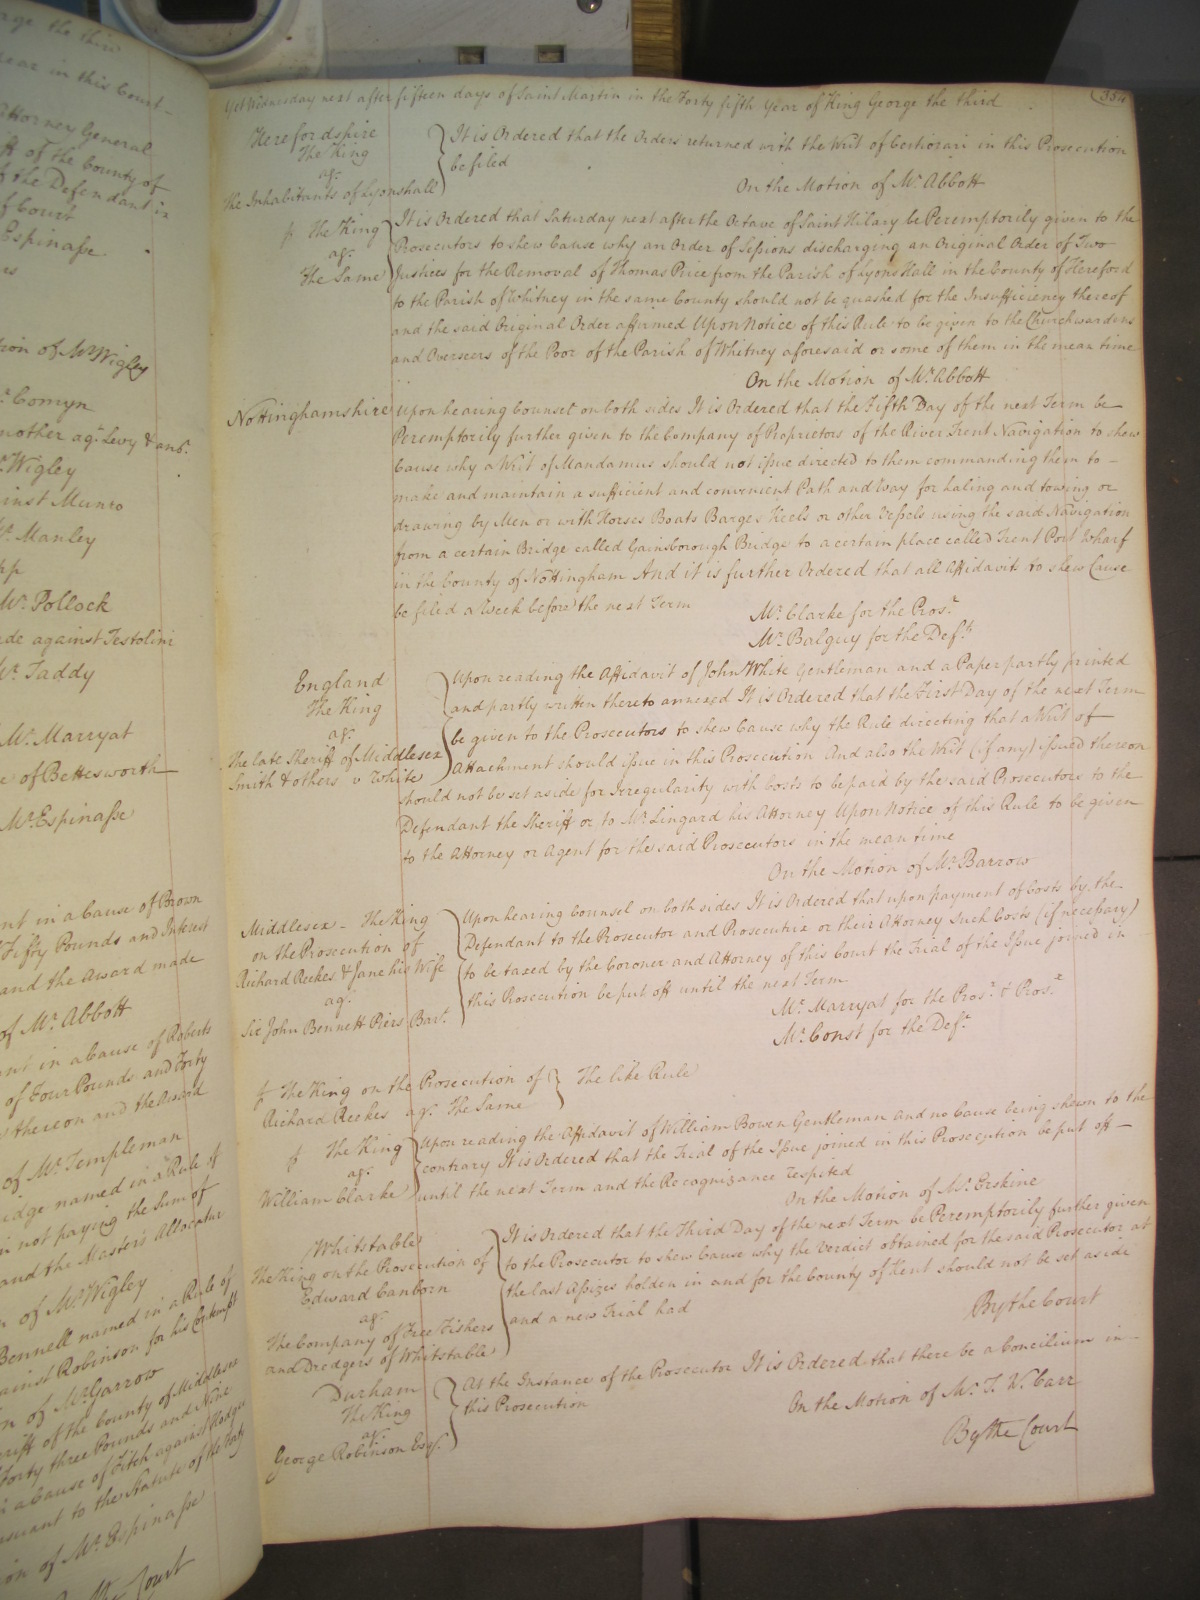 age the third
year in this Court
Attorney General
ff of the County of
f the Defendant in
f Court
Espinasse
rs
tion of Mr Wigley
r. Comyn
nother agt. Levy & anr.
r. Wigley
inst Munro
Mr. Manley
pp
Mr. Pollock
ade against Testolini
Mr. Taddy
Mr. Marryat
e of Bettesworth
Mr. Espinasse
ent in a Cause of Brown
Fifty Pounds and Interest
and the Award made
of Mr. Abbott
ant in a Cause of Roberts
of Four Pounds and Forty
thereon and the Award
of Mr. Templeman
idge named in a Rule of
in not paying the Sum of
and the Master's Allocatur
n of Mr. Wigley
Bennell named in a Rule of
ainst Robinson for his Contempt
on of Mr. Garrow
eriff of the County of Middlesex
Forty three Pounds and Nine
in a Cause of Fitch against Hodges
rsuant to the Statute of the
ion of Mr. Espinasse
By the Court
354
Yet Wednesday next after fifteen days of Saint Martin in the Forty fifth Year of King George the third
Herefordshire
The King
agt.
The Inhabitants of Lyonshall
It is Ordered that the Orders returned with the Writ of Certiorari in this Prosecution
be filed
On the Motion of Mr. Abbott
The King
agt.
The Same
It is Ordered that Saturday next after the Octave of Saint Hilary be Peremptorily given to the
Prosecutors to shew Cause why an Order of Sessions discharging an Original Order of Two
Justices for the Removal of Thomas Price from the Parish of Lyons Hall in the County of Hereford
to the Parish of Whitney in the same County should not be quashed for the Insufficiency thereof
and the said Original Order affirmed Upon Notice of this Rule to be given to the Churchwardens
and Overseers of the Poor of the Parish of Whitney aforesaid or some of them in the mean time
On the Motion of Mr. Abbott
Nottinghamshire
Upon hearing Counsel on both sides It is Ordered that the Fifth Day of the next Term be
Peremptorily further given to the Company of Proprietors of the River Trent Navigation to shew
Cause why a Writ of Mandamus should not issue directed to them commanding them to
make and maintain a sufficient and convenient Path and Way for haling and towing or
drawing by Men or with Horses Boats Barges Keels or other Vessels using the said Navigation
from a certain Bridge called Gainsborough Bridge to a certain place called Trent Port Wharf
in the County of Nottingham And it is further Ordered that all Affidavits to shew Cause
be filed a Week before the next Term
Mr. Clarke for the Prosr.
Mr. Balguy for the Defts.
England
The King
agt.
The late Sheriff of Middlesex
Smith & others v White
Upon reading the Affidavit of John White Gentleman and a Paper partly printed
and partly written thereto annexed It is Ordered that the First Day of the next Term
be given to the Prosecutors to shew Cause why the Rule directing that a Writ of
Attachment should issue in this Prosecution And also the Writ (if any) issued thereon
should not be set aside for Irregularity with Costs to be paid by the said Prosecutors to the
Defendant the Sheriff or to Mr. Lingard his Attorney Upon Notice of this Rule to be given
to the Attorney or Agent for the said Prosecutors in the mean time
On the Motion of Mr. Barrow
Middlesex - The King
on the Prosecution of
Richard Reekes & Jane his Wife
agt.
Sir John Bennett Piers Bart.
Upon hearing Counsel on both sides It is Ordered that upon payment of Costs by the
Defendant to the Prosecutor and Prosecutrix or their Attorney Such Costs (if necessary)
to be taxed by the Coroner and Attorney of this Court the Trial of the Issue joined in
this Prosecution be put off until the next Term
Mr. Marryat for the Prosr. & Prosx.
Mr. Const for the Deft.
The King on the Prosecution of
Richard Reekes agt. The Same
The like Rule
The King
agt.
William Clarke
Upon reading the Affidavit of William Bowen Gentleman and no Cause being shewn to the
contrary It is Ordered that the Trial of the Issue joined in this Prosecution be put off
until the next Term and the Recognizance respited
On the Motion of Mr. Erskine
Whitstable
The King on the Prosecution of
Edward Canborn
agt.
The Company of Free Fishers
and Dredgers of Whitstable
It is Ordered that the Third Day of the next Term be Peremptorily further given
to the Prosecutor to shew Cause why the Verdict obtained for the said Prosecutor at
the last Assizes holden in and for the County of Kent should not be set aside
and a new Trial had
By the Court
Durham
The King
agt.
George Robinson Esqr.
At the Instance of the Prosecutor It is Ordered that there be a Concilium in
this Prosecution
On the Motion of Mr. T. W. Carr
By the Court